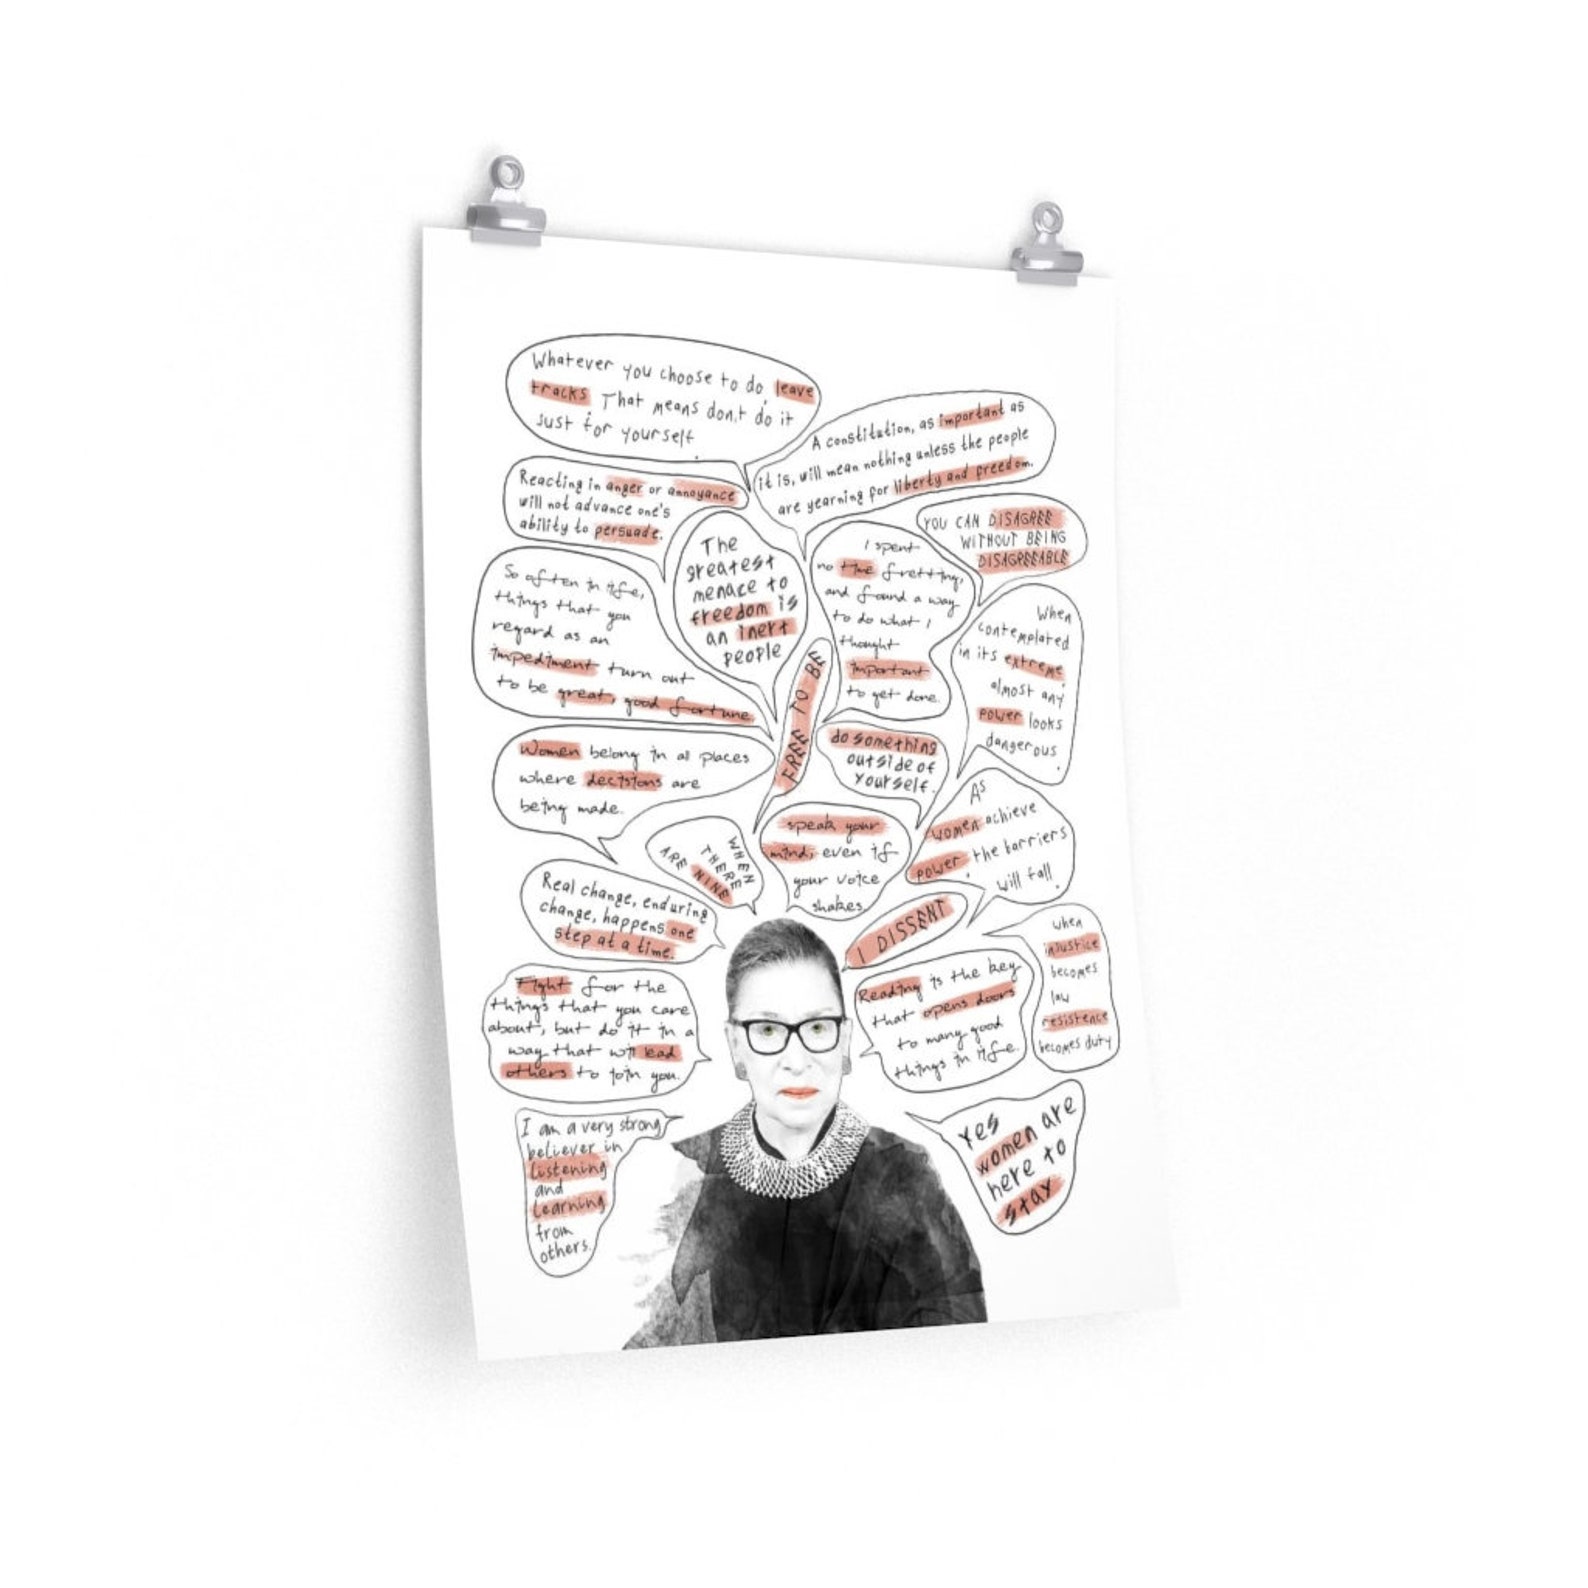 Whatever you choose to do, leave
tracks. That means don't do it
just for yourself.
A constitution, as important as
it is, will mean nothing unless the people
are yearning for liberty and freedom.
Reacting in anger or annoyance
will not advance one's
ability to persuade.
YOU CAN DISAGREE
WITHOUT BEING
DISAGREEABLE
The
greatest
menace to
freedom is
an inert
people
I spent
no time fretting,
and found a way
to do what I
thought
important
to get done.
So often in life,
things that you
regard as an
impediment turn out
to be great, good fortune.
When
contemplated
in its extreme,
almost any
power looks
dangerous.
FREE TO BE
do something
outside of
yourself.
Women belong in all places
where decisions are
being made.
As
women achieve
power, the barriers
will fall.
WHEN
THERE
ARE NINE
speak your
mind, even if
your voice
shakes.
Real change, enduring
change, happens one
step at a time.
I DISSENT
when
injustice
becomes
law
resistence
becomes duty
Fight for the
things that you care
about, but do it in a
way that will lead
others to join you.
Reading is the key
that opens doors
to many good
things in life.
I am a very strong
believer in
listening
and
learning
from
others.
Yes
women are
here to
stay